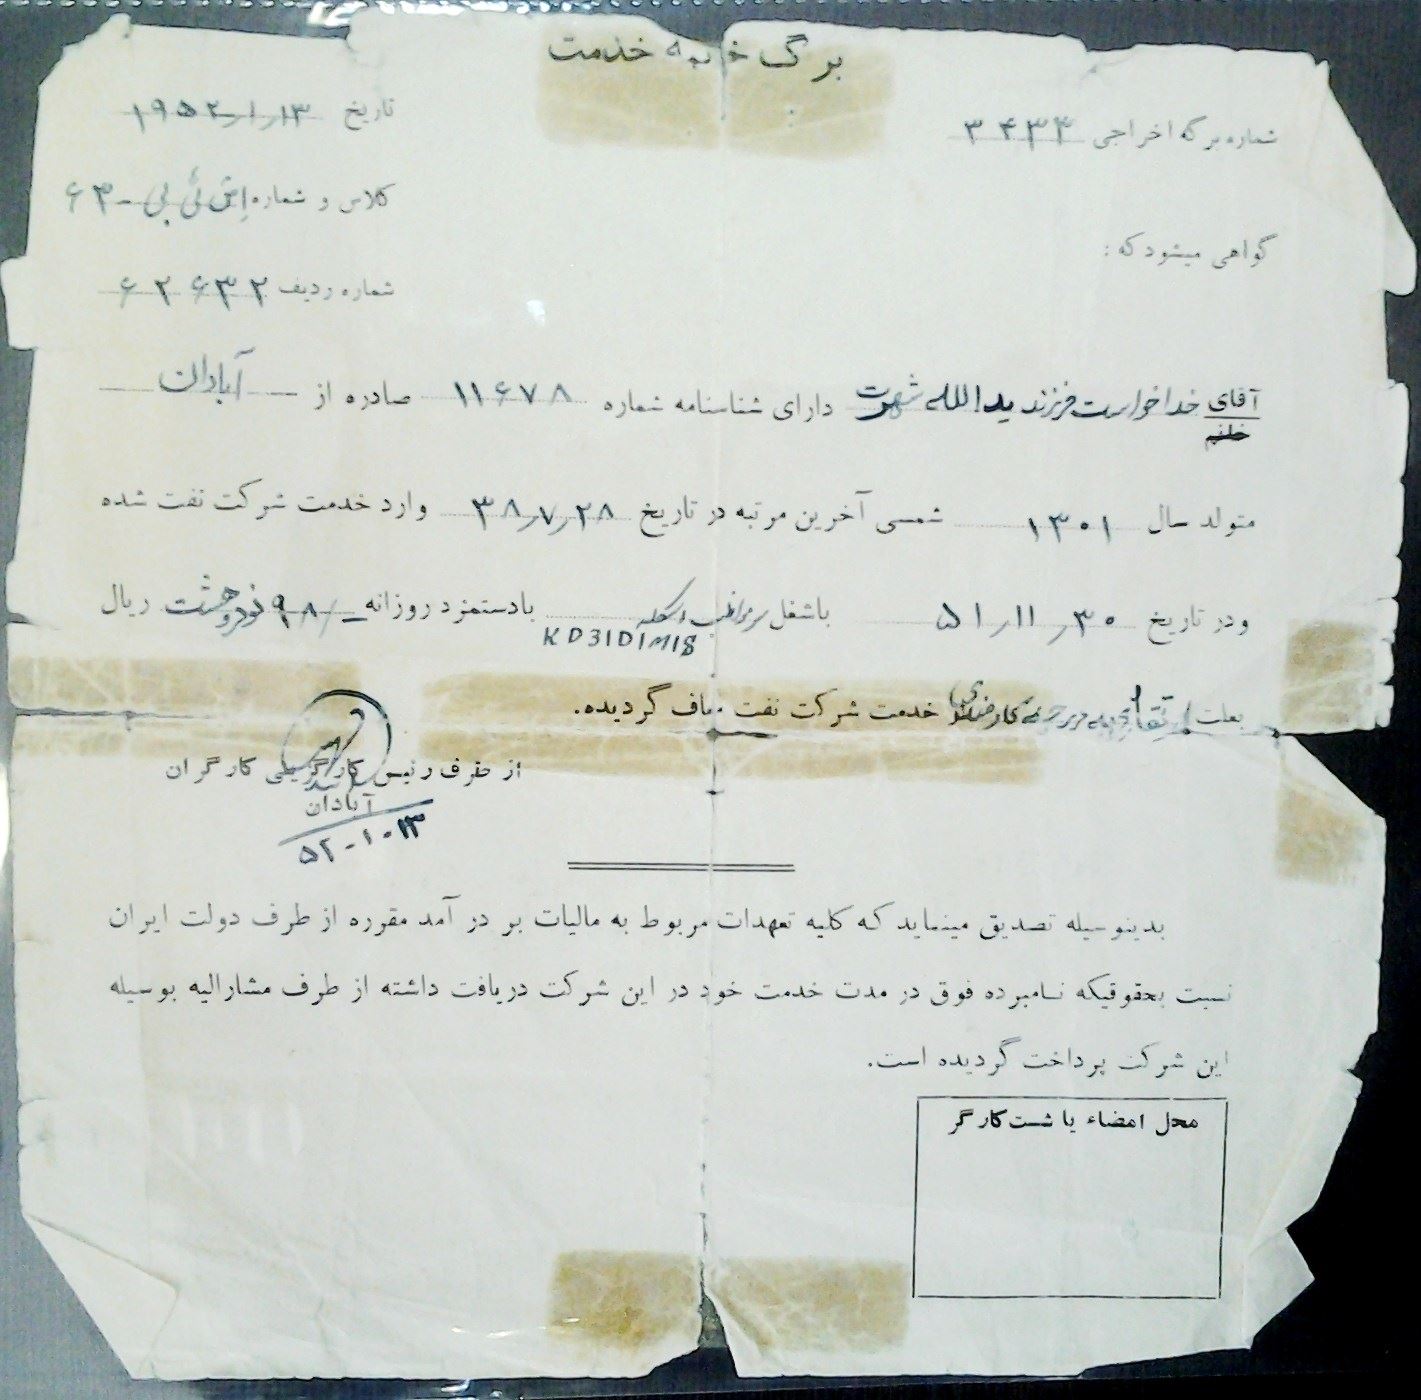 برگ خاتمه خدمت
شماره برگه اخراجی ۳۴۳۴
تاریخ ۱۹۵۲/۱/۱۳
کلاس و شماره اِش ئی بی - ۶۳
گواهی میشود که :
شماره ردیف ۶۲۶۳۲
آقای خداخواست فرزند یدالله شهرت دارای شناسنامه شماره ۱۱۶۷۸ صادره از آبادان
خانم
متولد سال ۱۳۰۱ شمسی آخرین مرتبه در تاریخ ۳۸/۷/۲۸ وارد خدمت شرکت نفت شده
و در تاریخ ۵۱/۱۱/۳۰ با شغل اسکله با دستمزد روزانه ۹۸/- نود و هشت ریال
KD31D1M18
بعلت ارتقاء کارمندی خدمت شرکت نفت معاف گردیده.
از طرف رئیس کارگزینی کارگران
آبادان
۵۲-۱-۱۳
بدینوسیله تصدیق مینماید که کلیه تعهدات مربوط به مالیات بر در آمد مقرره از طرف دولت ایران
نسبت بحقوقیکه نامبرده فوق در مدت خدمت خود در این شرکت دریافت داشته از طرف مشارالیه بوسیله
این شرکت پرداخت گردیده است.
محل امضاء یا شست کارگر